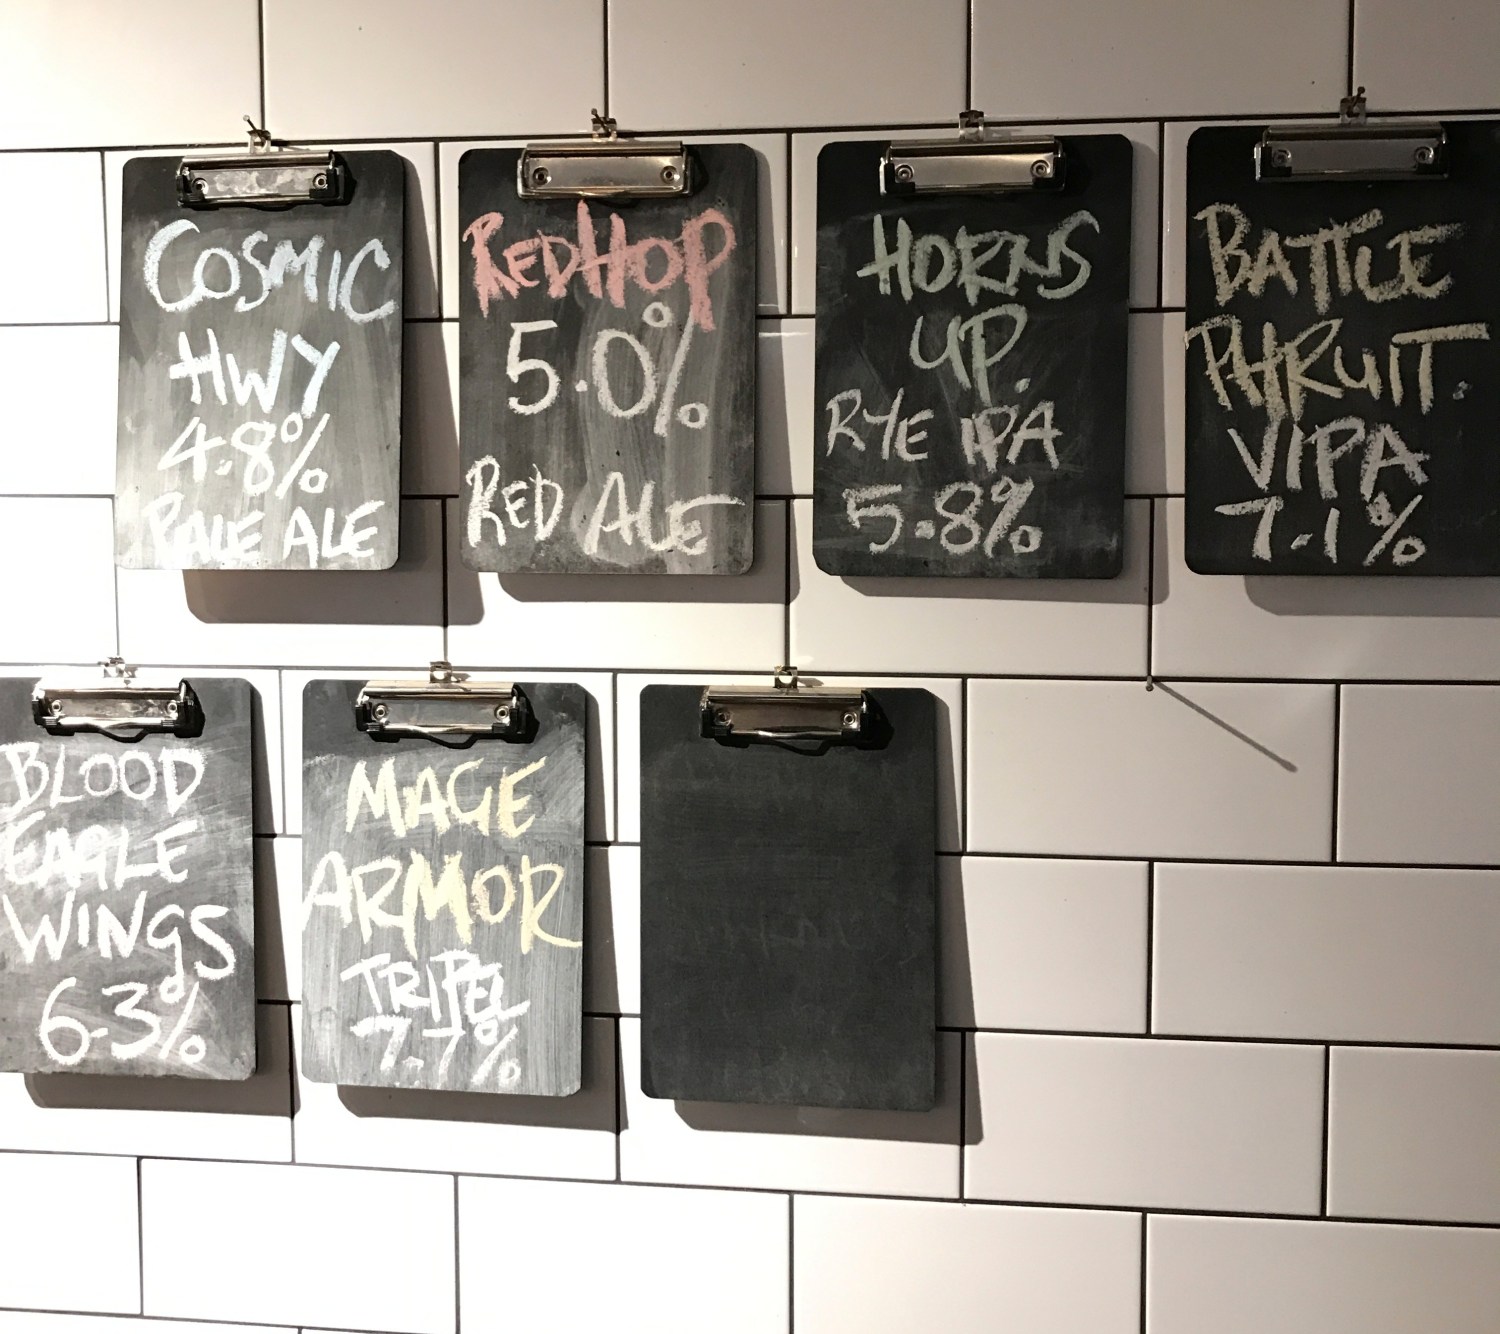 COSMIC
HWY
4.8%
PALE ALE
REDHOP
5.0%
RED ALE
HORNS
UP.
RYE IPA
5.8%
BATTLE
PHRUIT.
VIPA
7.1%
BLOOD
EAGLE
WINGS
6.3%
MAGE
ARMOR
TRIPEL
7.7%